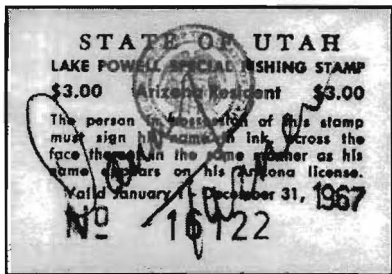 STATE OF UTAH
LAKE POWELL SPECIAL FISHING STAMP
$3.00 Arizona Resident $3.00
The person in possession of this stamp
must sign his name in ink across the
face thereof in the same manner as his
name appears on his Arizona license.
Valid January 1 - December 31, 1967
No 16122